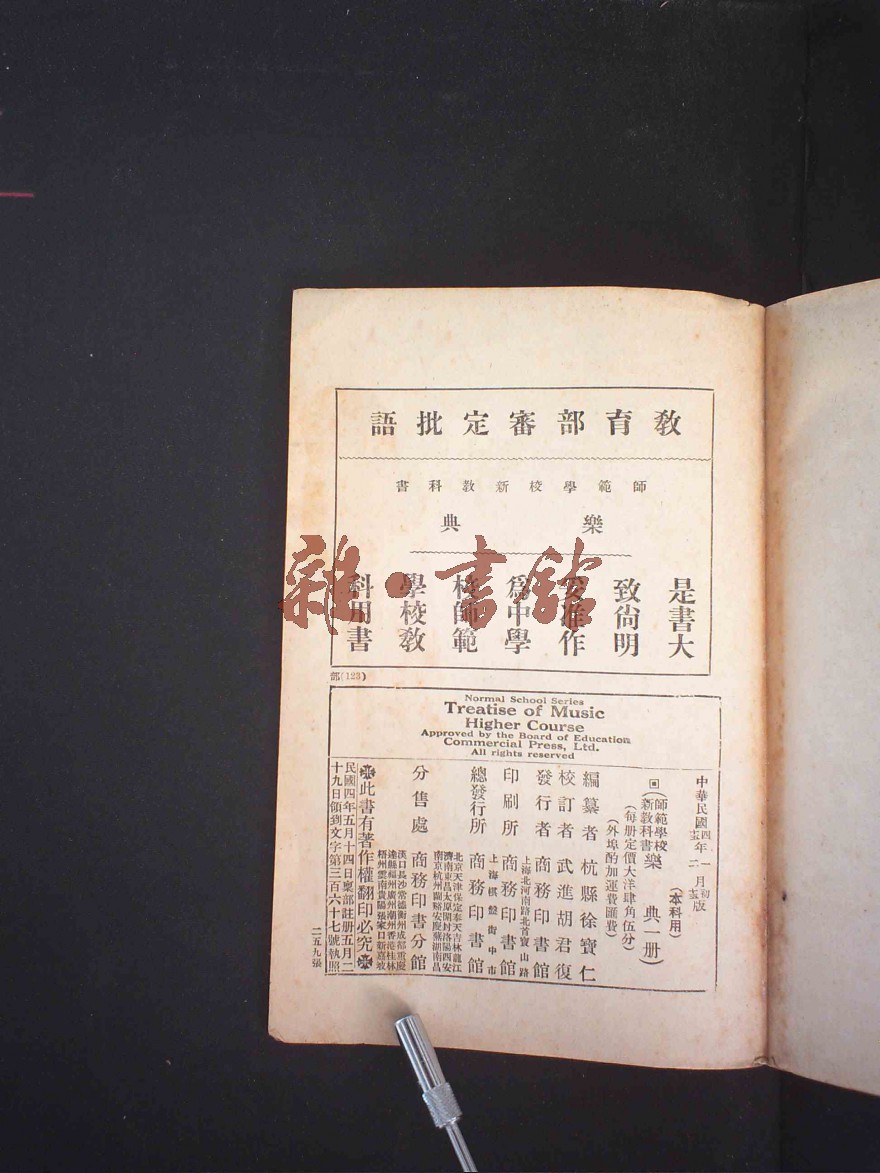 教育部審定批語
師範學校新教科書
樂典
是書大
致尙明
爰准作
爲中學
校師範
學校教
科用書
雜·書館
部(123)
Normal School Series
Treatise of Music
Higher Course
Approved by the Board of Education
Commercial Press, Ltd.
All rights reserved
中華民國四年一月初版
(本科用)
(師範學校新教科書樂典一册)
(每册定價大洋肆角伍分)
(外埠酌加運費匯費)
編纂者 杭縣徐寶仁
校訂者 武進胡君復
發行者 商務印書館
上海北河南路北首寶山路
印刷所 商務印書館
上海棋盤街中市
總發行所 商務印書館
北京天津保定奉天吉林龍江
濟南東昌太原開封洛陽西安
南京杭州蘭谿安慶蕪湖南昌
分售處 商務印書分館
漢口長沙常德衡州成都重慶
福州廣州潮州香港桂林
梧州雲南貴陽張家口新嘉坡
此書有著作權翻印必究
民國四年五月十四日稟部註册五月二
十九日領到文字第三百六十七號執照
二五九張